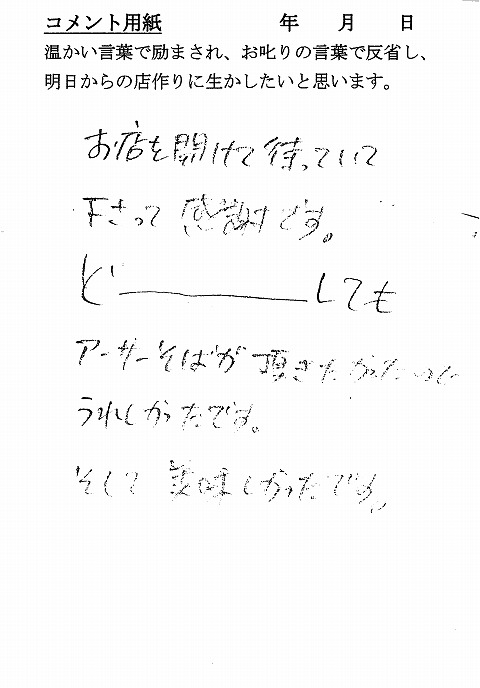 コメント用紙 年 月 日
温かい言葉で励まされ、お叱りの言葉で反省し、
明日からの店作りに生かしたいと思います。
お店を開けて待っていて
下さって感謝です。
ど―――しても
アーサーそばが頂きたかったので
うれしかったです。
そして美味しかったです。